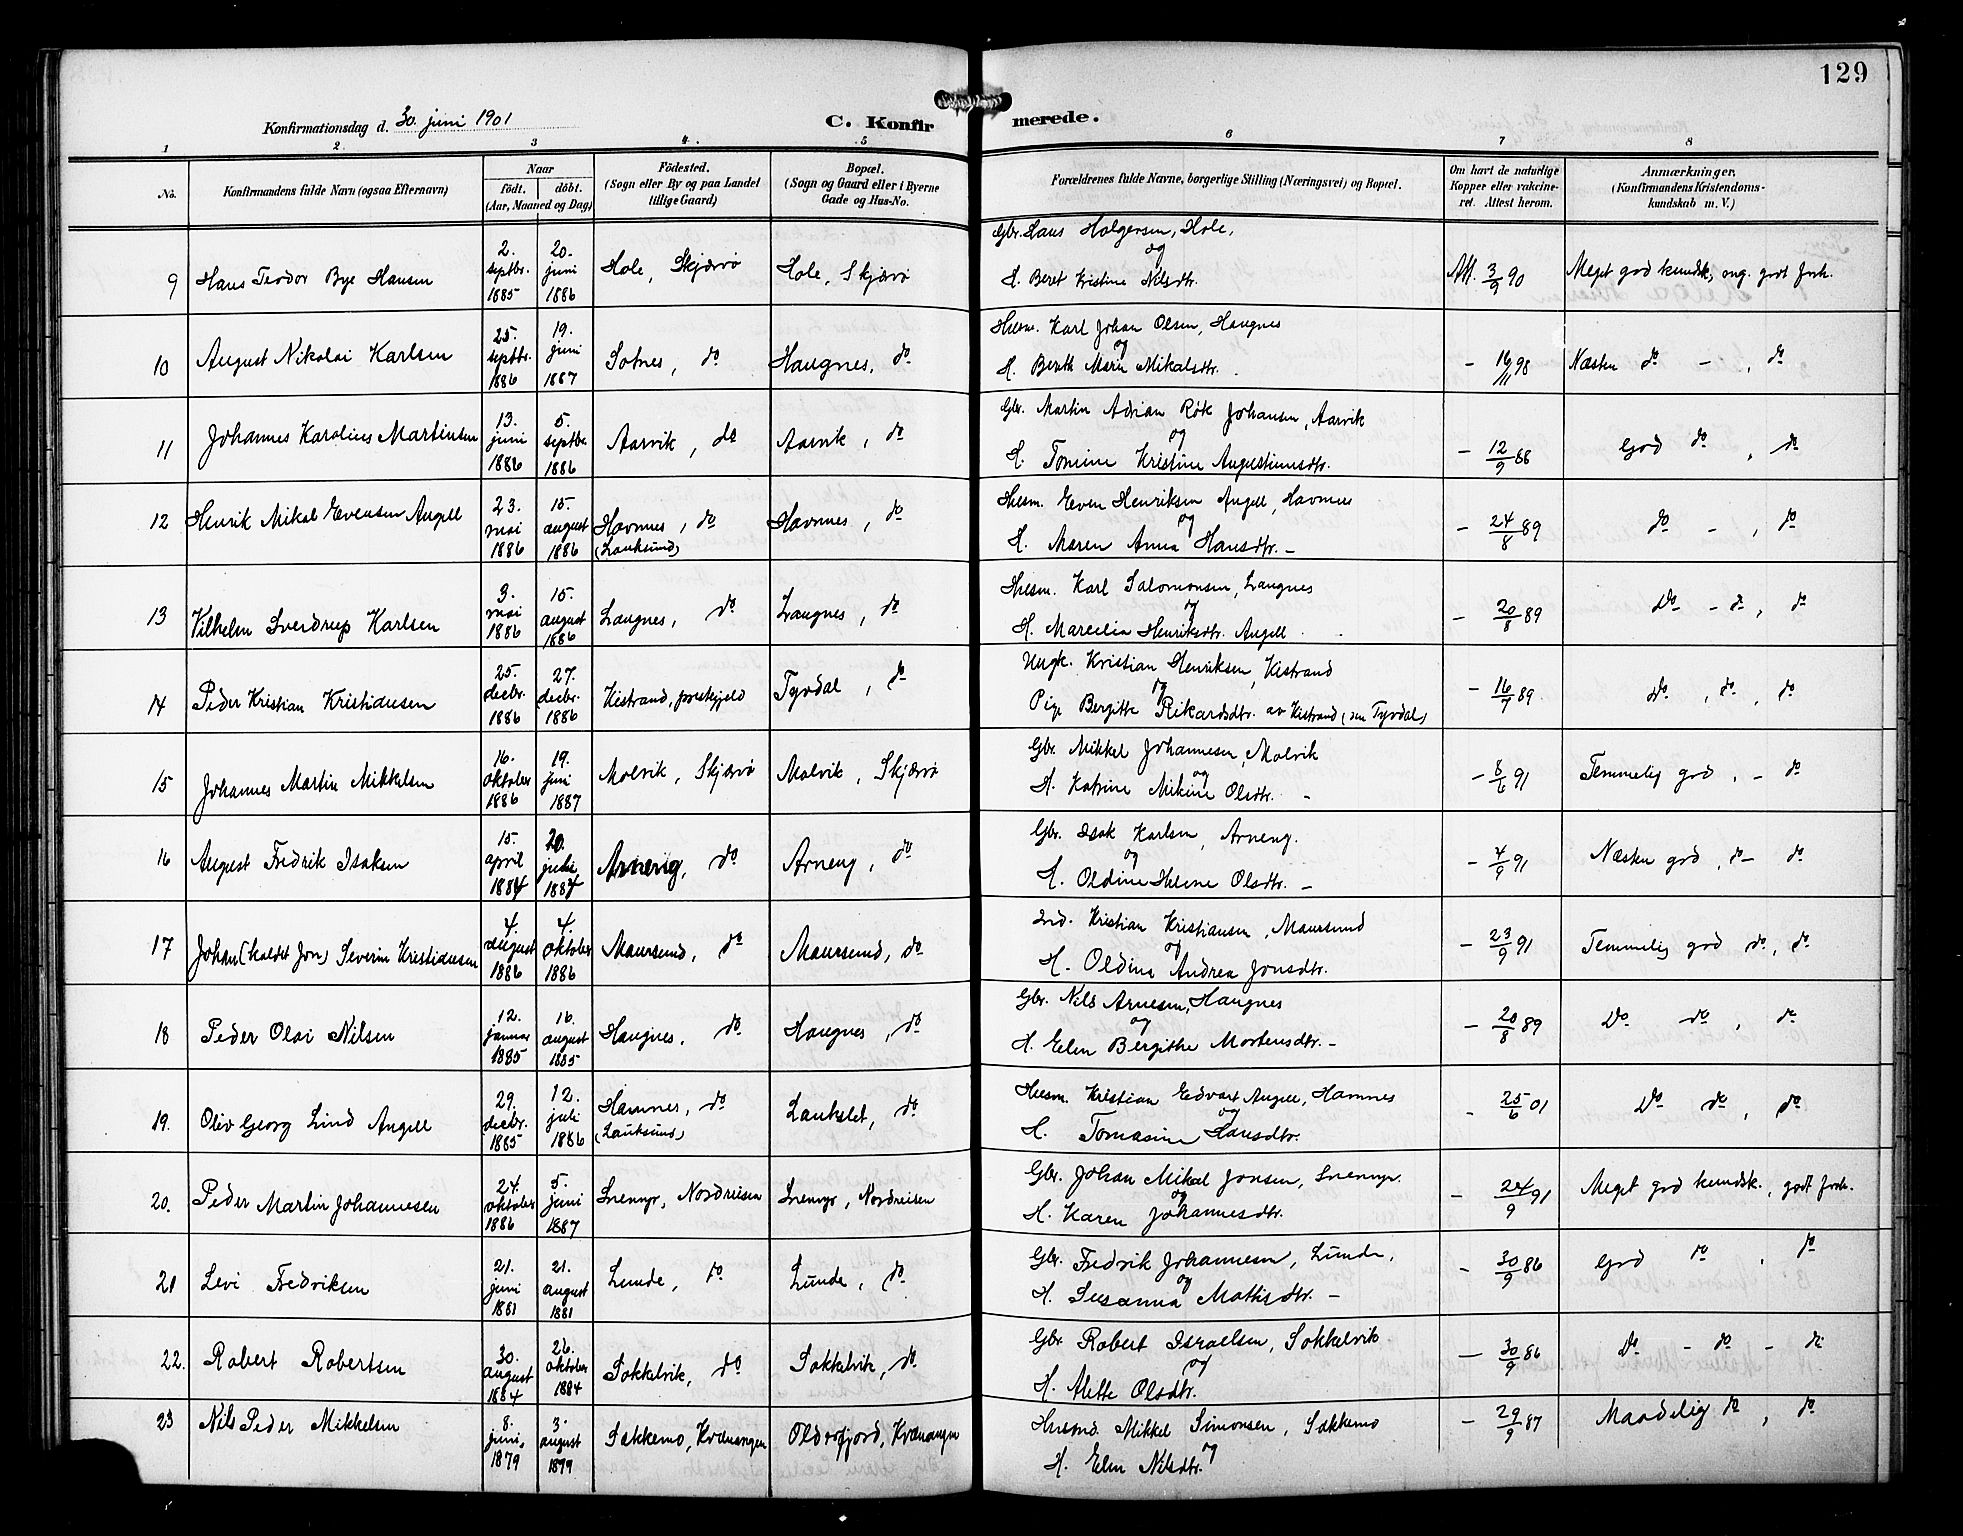 129
Konfirmationsdag d. 30. juni 1901
C. Konfirmerede.
1 2 3 4. 5 6 7 8
No. Konfirmandens fulde Navn (ogsaa Efternavn) Naar født. døbt. (Aar, Maaned og Dag) Födested. (Sogn eller By og paa Landet tillige Gaard) Bopæl. (Sogn og Gaard eller i Byerne Gade og Hus-No. Forældrenes fulde Navne, borgerlige Stilling (Næringsvei) og Bopæl. Om havt de naturlige Kopper eller vakcineret. Attest herom. Anmærkninger, (Konfirmandens Kristendomskundskab m. V.)
9 Hans Teodor Bye Hansen 2. septbr. 1885 20. juni 1886 Hole, Skjærvø Hole, Skjærvø Gbr. Hans Holgersen, Hole, og H. Beret Kristine Nilsdtr. Att. 3/9 90 Meget god kundsk, og godt forh.
10 August Nikolai Karlsen 25. septbr. 1886 19. juni 1887 Sotnes, do Haugnes, do Husm. Karl Johan Olsen, Haugnes og H. Berith Marie Mikalsdtr. - 16/11 98 Næsten do - , do
11 Johannes Karolius Martinsen 13. juni 1886 5. septbr. 1886 Aarvik, do Aarvik, do Gbr. Martin Adrian Røk Johansen, Aarvik og H. Tomine Kristine Augustinusdtr. - 12/9 88 God do , do
12 Henrik Mikal Evensen Angell 23. mai 1886 15. august 1886 Havnnes, do (Lauksund) Havnnes, do Husm. Even Henriksen Angell, Havnnes og H. Maren Anna Hansdtr. - - 24/8 89 do - , do
13 Vilhelm Sverdrup Karlsen 3. mai 1886 15. august 1886 Laugnes, do Laugnes, do Husm. Karl Salomonsen, Laugnes og H. Marcelia Henriksdtr. Angell - 20/8 89 Do - do, do
14 Peder Kristian Kristiansen 25. decbr. 1886 27. decbr. 1886 Kistrand, prestegjeld Tyvdal, do Ungk. Kristian Henriksen, Kistrand og Pige Bergitte Rikardsdtr. av Kistrand (nu Tyvdal) - 16/7 89 Do , do , do
15 Johannes Martin Mikkelsen 16. oktober 1886 19. juni 1887 Molvik, Skjærvø Molvik, Skjærvø Gbr. Mikkel Johannesen, Molvik og H. Katrine Mikine Olsdtr. - - 8/6 91 Temmelig god , - do
16 August Fredrik Isaksen 15. april 1884 20. 1884 Arneng, do Arneng, do Gbr. Isak Karlsen, Arneng. og H. Oldine Helene Olsdtr. - - 4/9 91 Næsten god , do - do
17 Johan (kaldet Jon) Severin Kristiansen 4. august 1886 4. oktober 1886 Maursund, do Maursund, do Ind. Kristian Kristiansen, Maursund og H. Oldine Andrea Jonsdtr. - 23/9 91 Temmelig god do, do
18 Peder Olai Nilsen 12. januar 1885 16. august 1885 Haugnes, do Haugnes, do Gbr. Nils Arnesen, Haugnes og H. Elen Bergitte Mortensdtr. - - 20/8 89 Do do , do
19. Oliv Georg Lind Angell 29. decbr. 1885 12. juli 1886 Hamnes, do (Lauksund) Laukslet, do Husm. Kristian Edvart Angell, Hamnes og H. Tomasine Hansdtr. - 25/6 01 Do do , do
20. Peder Martin Johannesen 24. oktober 1886 5. juni 1887 Snemyr, Nordreisen Snemyr, Nordreisen Gbr. Johan Mikal Jonsen, Snemyr. og H. Karen Johannesdtr. - 24/9 91 Meget god kundsk., godt forh.
21 Levi Fredriksen 21. juni 1881 21. august 1881 Lunde, do Lunde, do Gbr. Fredrik Johannesen, Lunde, og H. Susanna Mathisdtr. - - 30/9 86 God do , do
22. Robert Robertsen 30. august 1884 26. oktober 1884 Sokkelvik, do Sokkelvik, do Gbr. Robert Israelsen, Sokkelvik og H. Alette Olsdtr. - 30/9 86 Do - do - do
23 Nils Peder Mikkelsen 8. juni, 1879 3. august 1879 Sakkemo, Kvænangen Olderfjord, Kvænangen Husmd. Mikkel Simonsen, Sakkemo og H. Elen Nilsdtr. - 29/9 87 Maadelig do , do